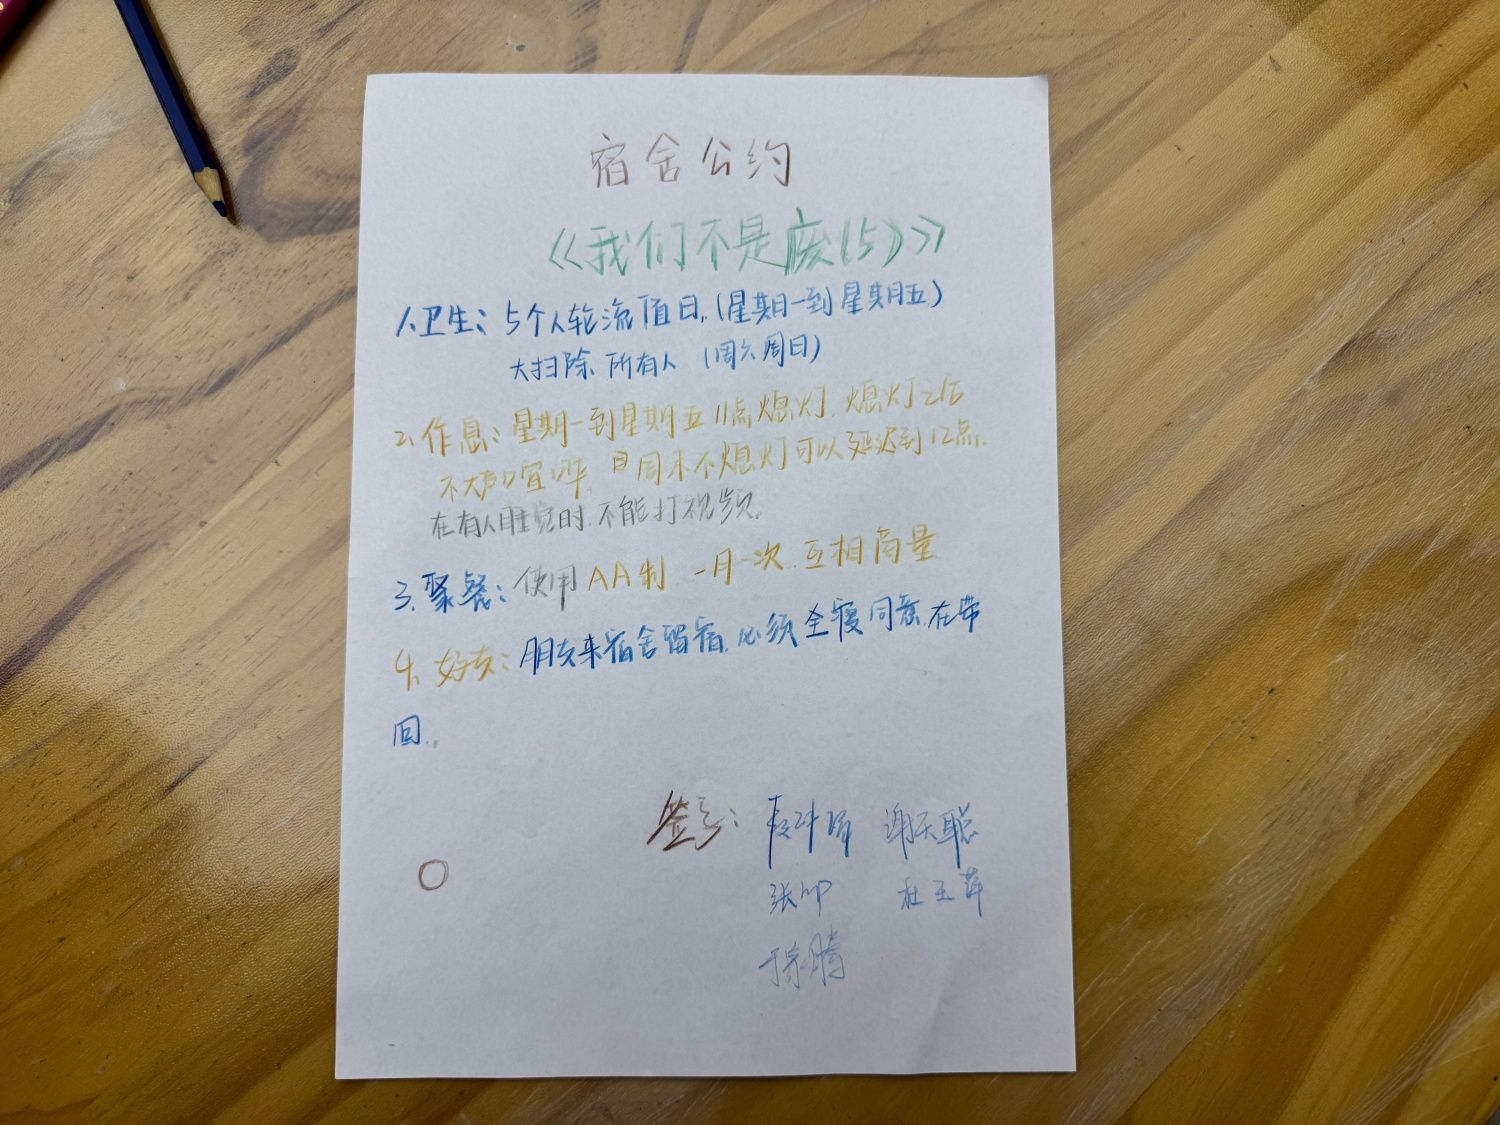 宿舍公约
《我们不是废(5)》
1、卫生：5个人轮流值日.(星期一到星期五)
大扫除 所有人 (周六周日)
2、作息：星期一到星期五11点熄灯.熄灯之后
不大声喧哗. 周末不熄灯可以延迟到12点.
在有人睡觉时.不能打视频.
3、聚餐：使用AA制 一月一次.互相商量
4、好友：朋友来宿舍留宿.必须全寝同意.在带
回.
签字： 谢天聪
张
杜玉萍